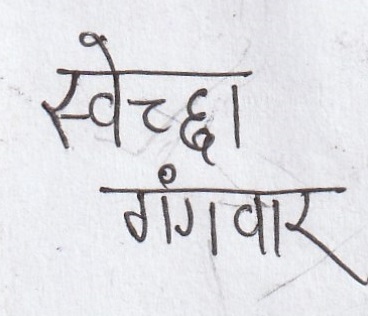 स्वेच्छा
गंगवार